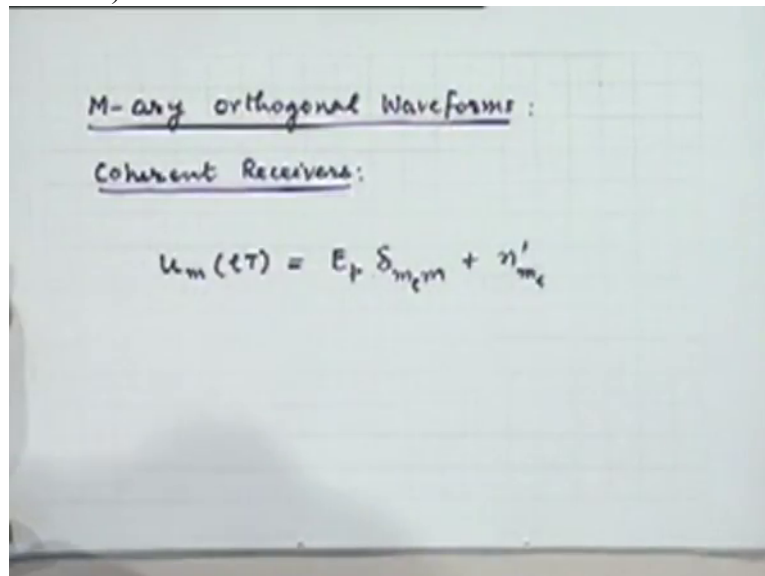 M-ary orthogonal Waveforms :
Coherent Receivers:
u_m (ℓT) = E_p δ_{m_ℓ m} + n'_{m_ℓ}